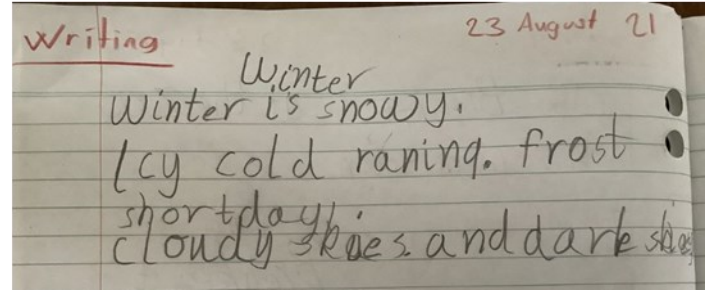 Writing 23 August 21
Winter
Winter is snowy.
Icy cold raning. frost
short day.
cloudy skies. and dark skies